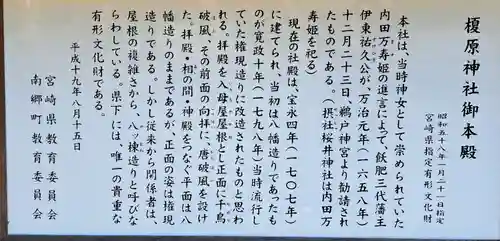 榎原神社御本殿
昭和五十八年一月二十一日指定
宮崎県指定有形文化財
本社は、当時神女として崇められていた
内田万寿姫の進言によって、飫肥三代藩主
伊東祐久公が、万治元年(一六五八年)
十二月二十三日、鵜戸神宮より勧請され
たものである。(摂社桜井神社は内田万
寿姫を祀る)
現在の社殿は、宝永四年(一七〇七年)
に建てられ、当初は八幡造りであったも
のが寛政十年(一七九八年)当時流行し
ていた権現造りに改造されたものと思わ
れる。拝殿を入母屋屋根と正面に千鳥
破風、その前面の向拝に、唐破風を設け
た。拝殿・相の間・神殿をつなぐ平面は八
幡造りのままであるが、正面の姿は権現
造りである。しかし従来から関係者は、
屋根の複雑さから、八ツ棟造りと呼びな
らわしている。県下には、唯一の貴重な
有形文化財である。
平成十九年八月十五日
宮崎県教育委員会
南郷町教育委員会